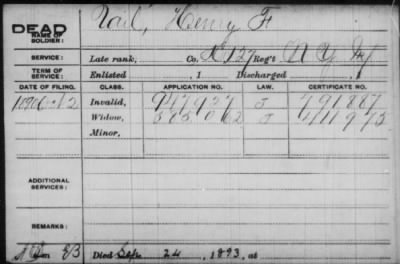 DEAD
NAME OF SOLDIER: Nail, Henry F
SERVICE: Late rank, Co. K 127 Reg't N Y Inf
TERM OF SERVICE: Enlisted , 1 Discharged , 1
DATE OF FILING. CLASS. APPLICATION NO. LAW. CERTIFICATE NO.
1890 Oct 2 Invalid, 947927 J 791887
Widow, J 411975
Minor,
ADDITIONAL SERVICES:
REMARKS:
Died Sep. 24, 1893, at